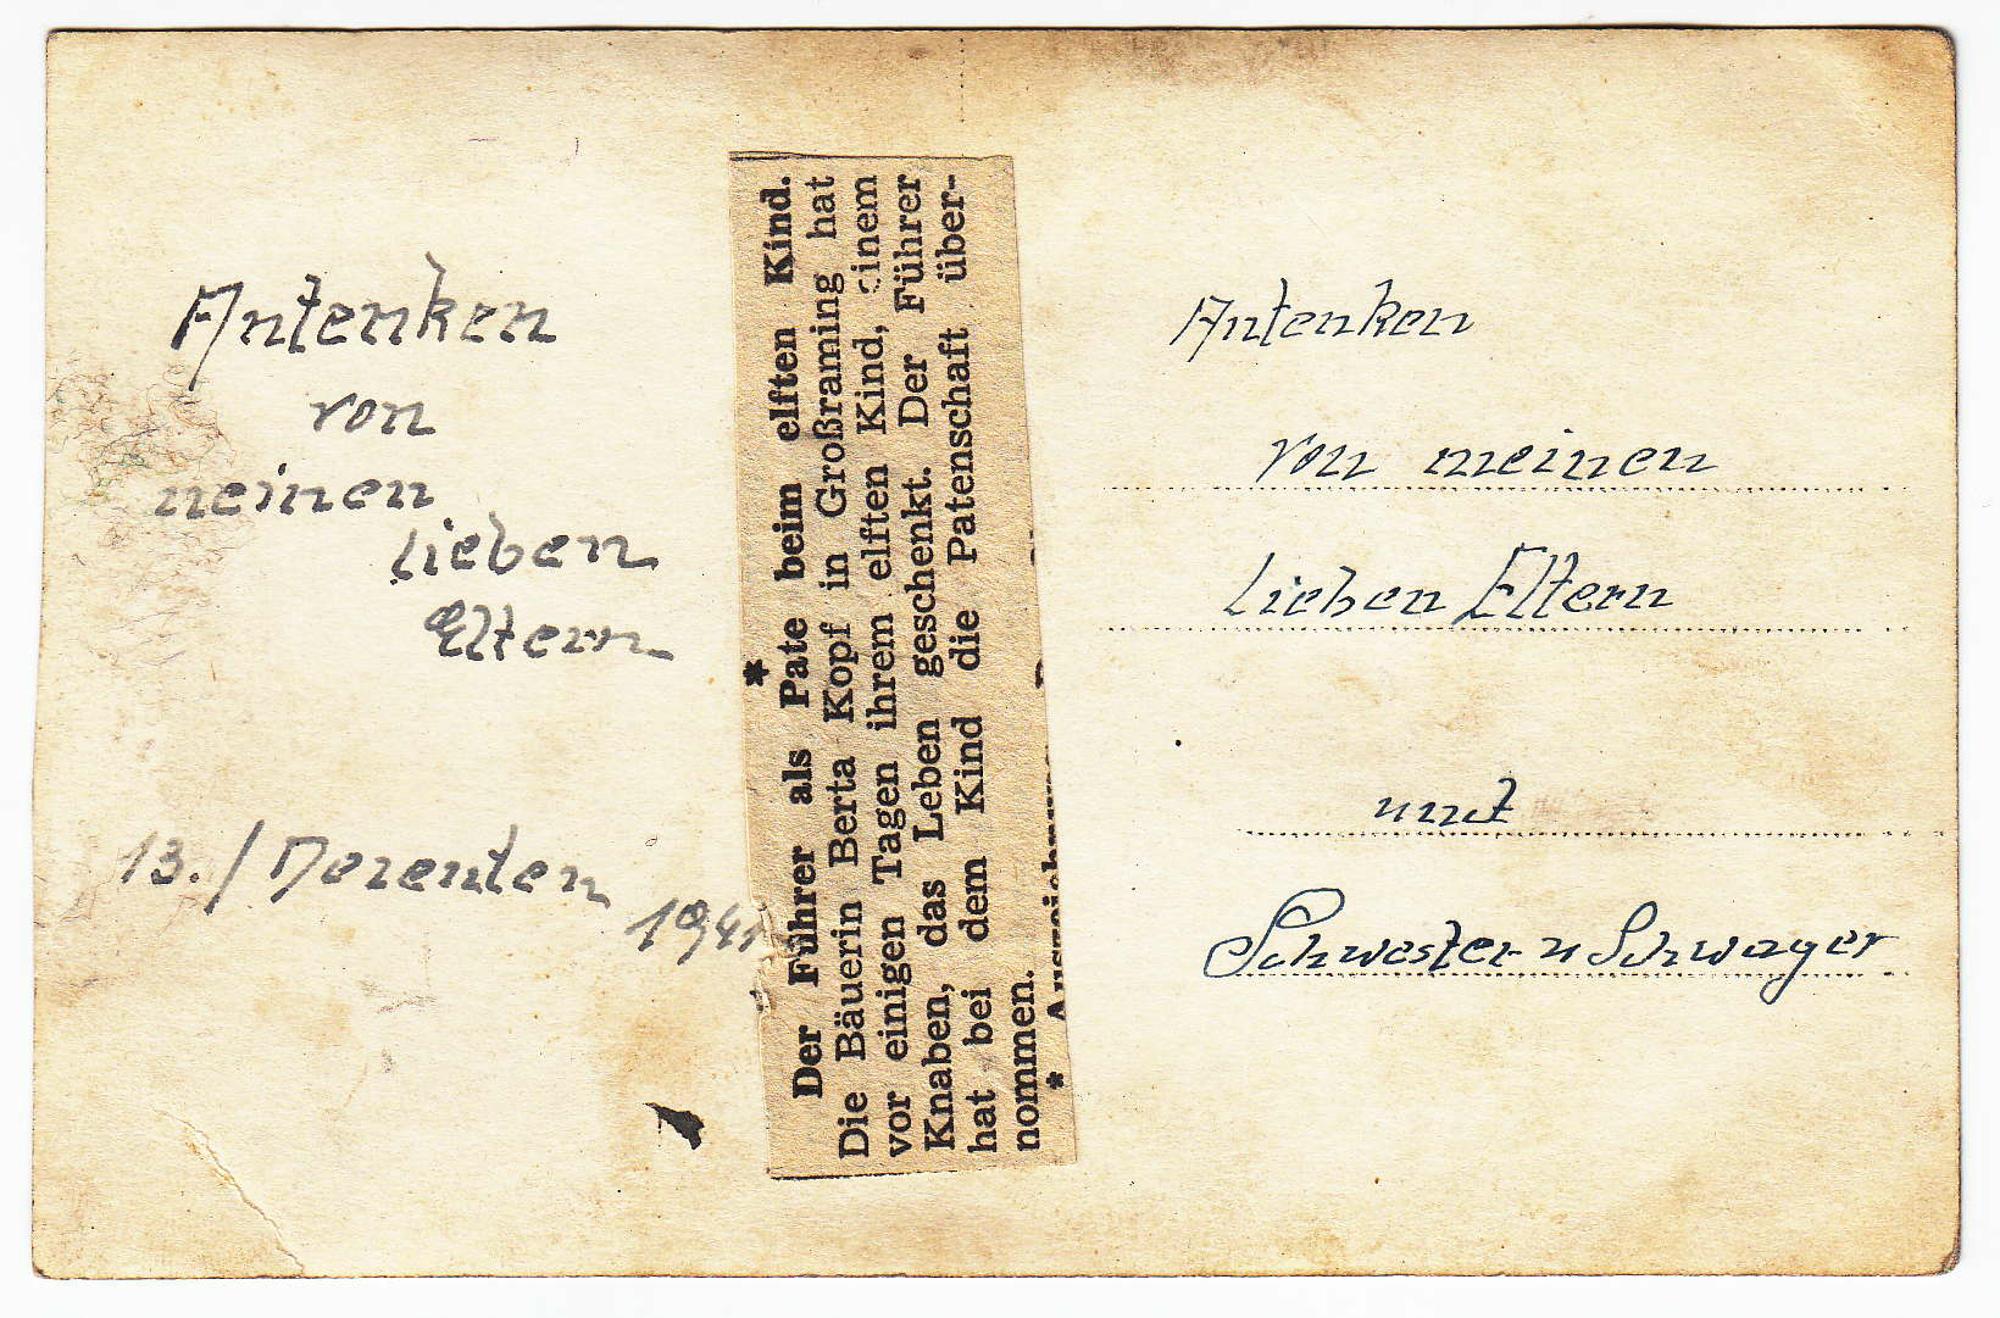 Antenken
von
meinen
lieben
Eltern
13./Dezenten
1941
*
Der Führer als Pate beim elften Kind.
Die Bäuerin Berta Kopf in Großraming hat
vor einigen Tagen ihrem elften Kind, einem
Knaben, das Leben geschenkt. Der Führer
hat bei dem Kind die Patenschaft über-
nommen.
*
Antenken
von meinen
Lieben Eltern
und
Schwester u Schwager